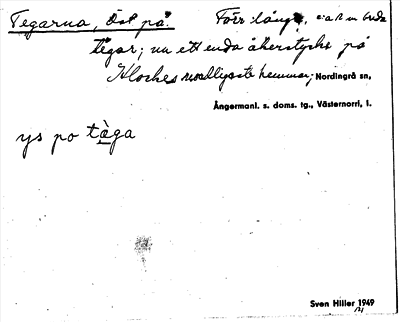 Tegarna, Öst på. Förr långa, c:a 2 m breda
tegar; nu ett enda åkerstycke på
Klockes nordligaste hemman; Nordingrå sn,
Ångermanl. s. doms. tg., Västernorrl, l.
ys po tàga
Sven Hiller 1949